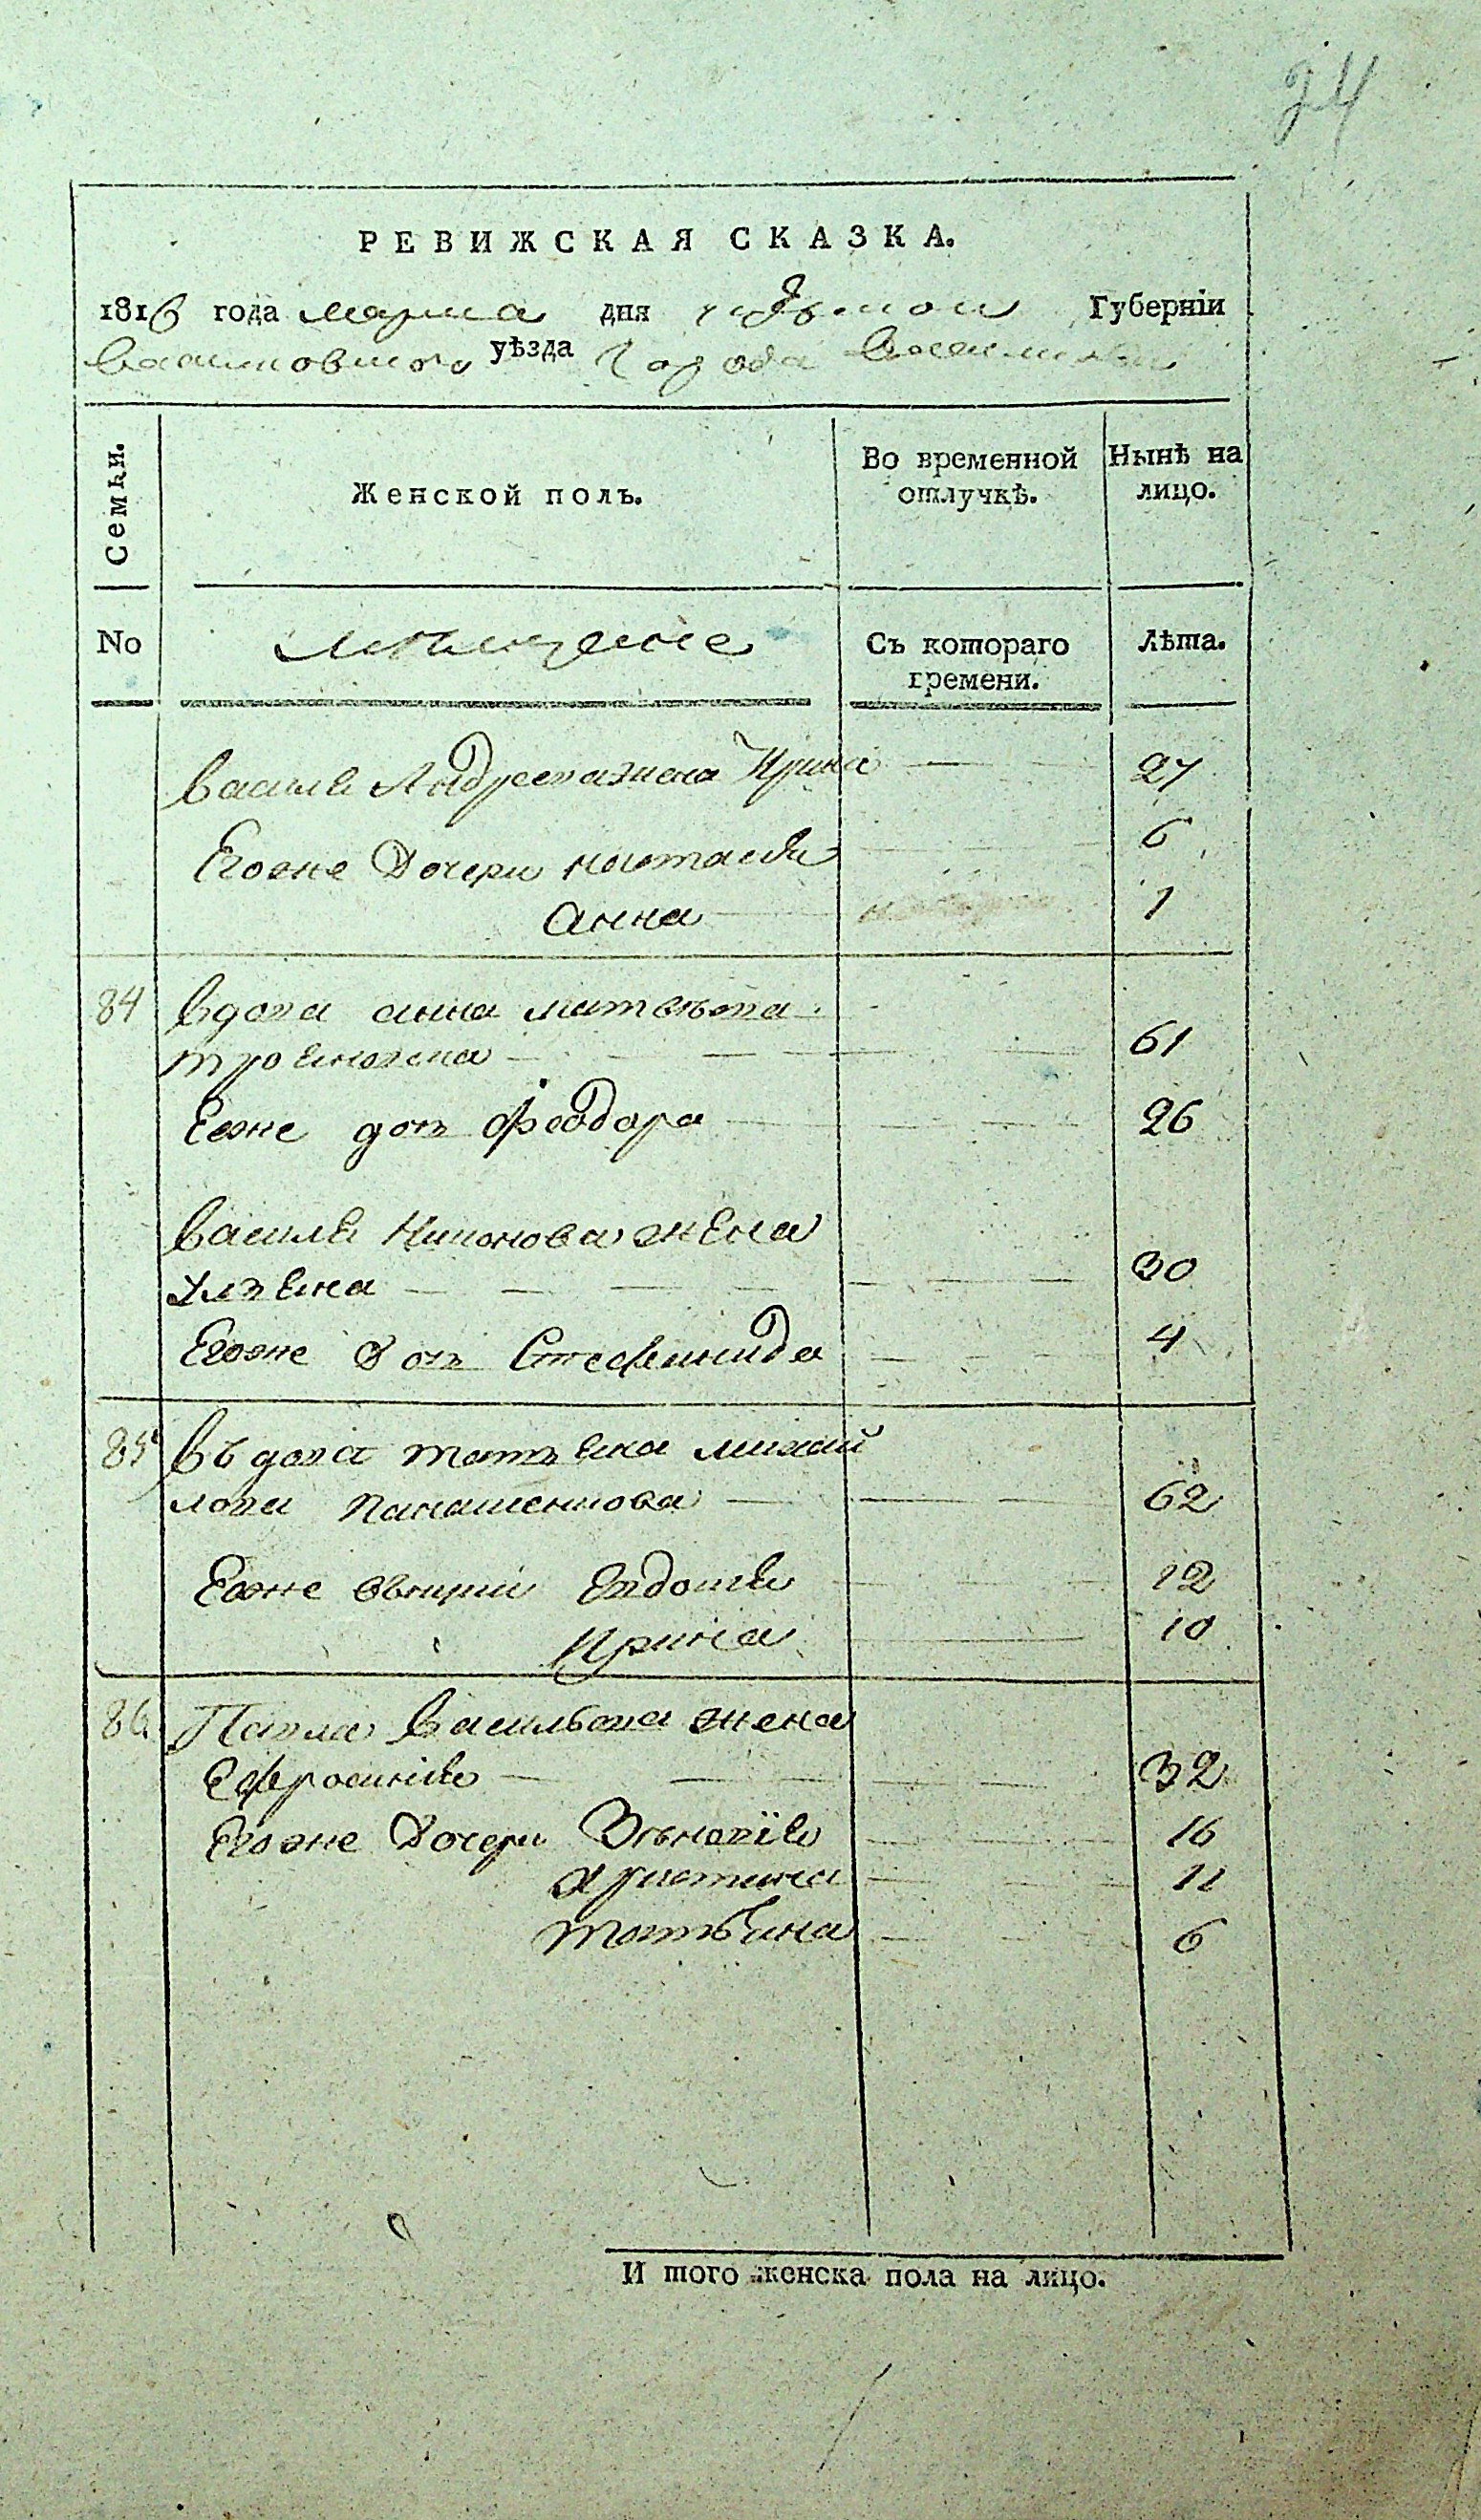 24
РЕВИЖСКАЯ СКАЗКА.
1816 года марта дня Губерніи
уѣзда города
Семьи.
Женской полъ.
Во временной
отлучкѣ.
Нынѣ на
лицо.
No
мѣщане
Съ котораго
гремени.
Лѣта.
Василія Андреева жена Ирина 27
Егоже Дочери настасія 6
Анна 1
84 вдова анна матвѣева
61
Еяже доч Феодора 26
Василія Никонова жена
Ульяна 30
Егоже Доч Стефанида 4
85 въдова татьяна михай
лова Панашенкова 62
Еяже внуки Евдокия 12
Ирина 10
86 Павла Васильева жена
Ефросинія 32
Егоже Дочери Зѣновія 16
Христина 11
Татьяна 6
И того женска пола на лицо.